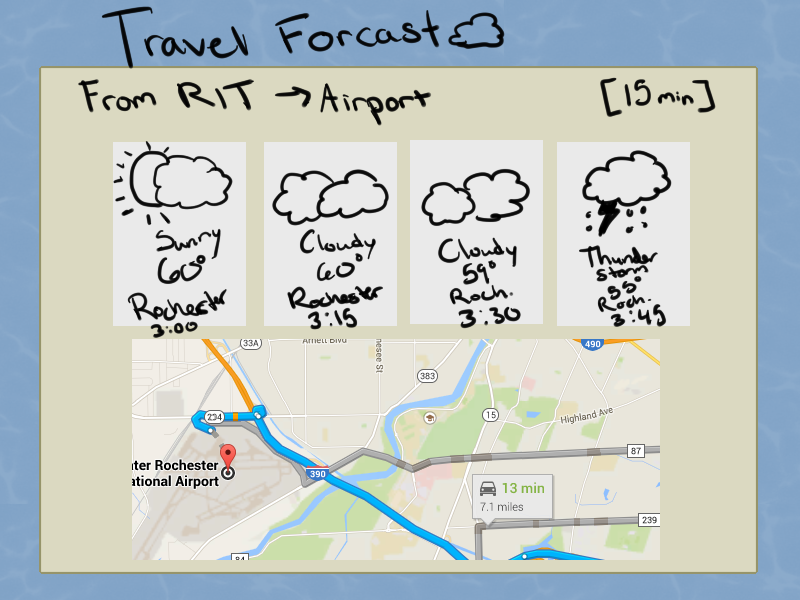 Travel Forcast
From RIT → Airport [15 min]
Sunny
60°
Rochester
3:00
Cloudy
60°
Rochester
3:15
Cloudy
59°
Roch.
3:30
Thunder
storm
55°
Roch.
3:45
33A
Arnett Blvd
nesee St
490
383
204
15
Highland Ave
87
390
ater Rochester
ational Airport
13 min
7.1 miles
239
84